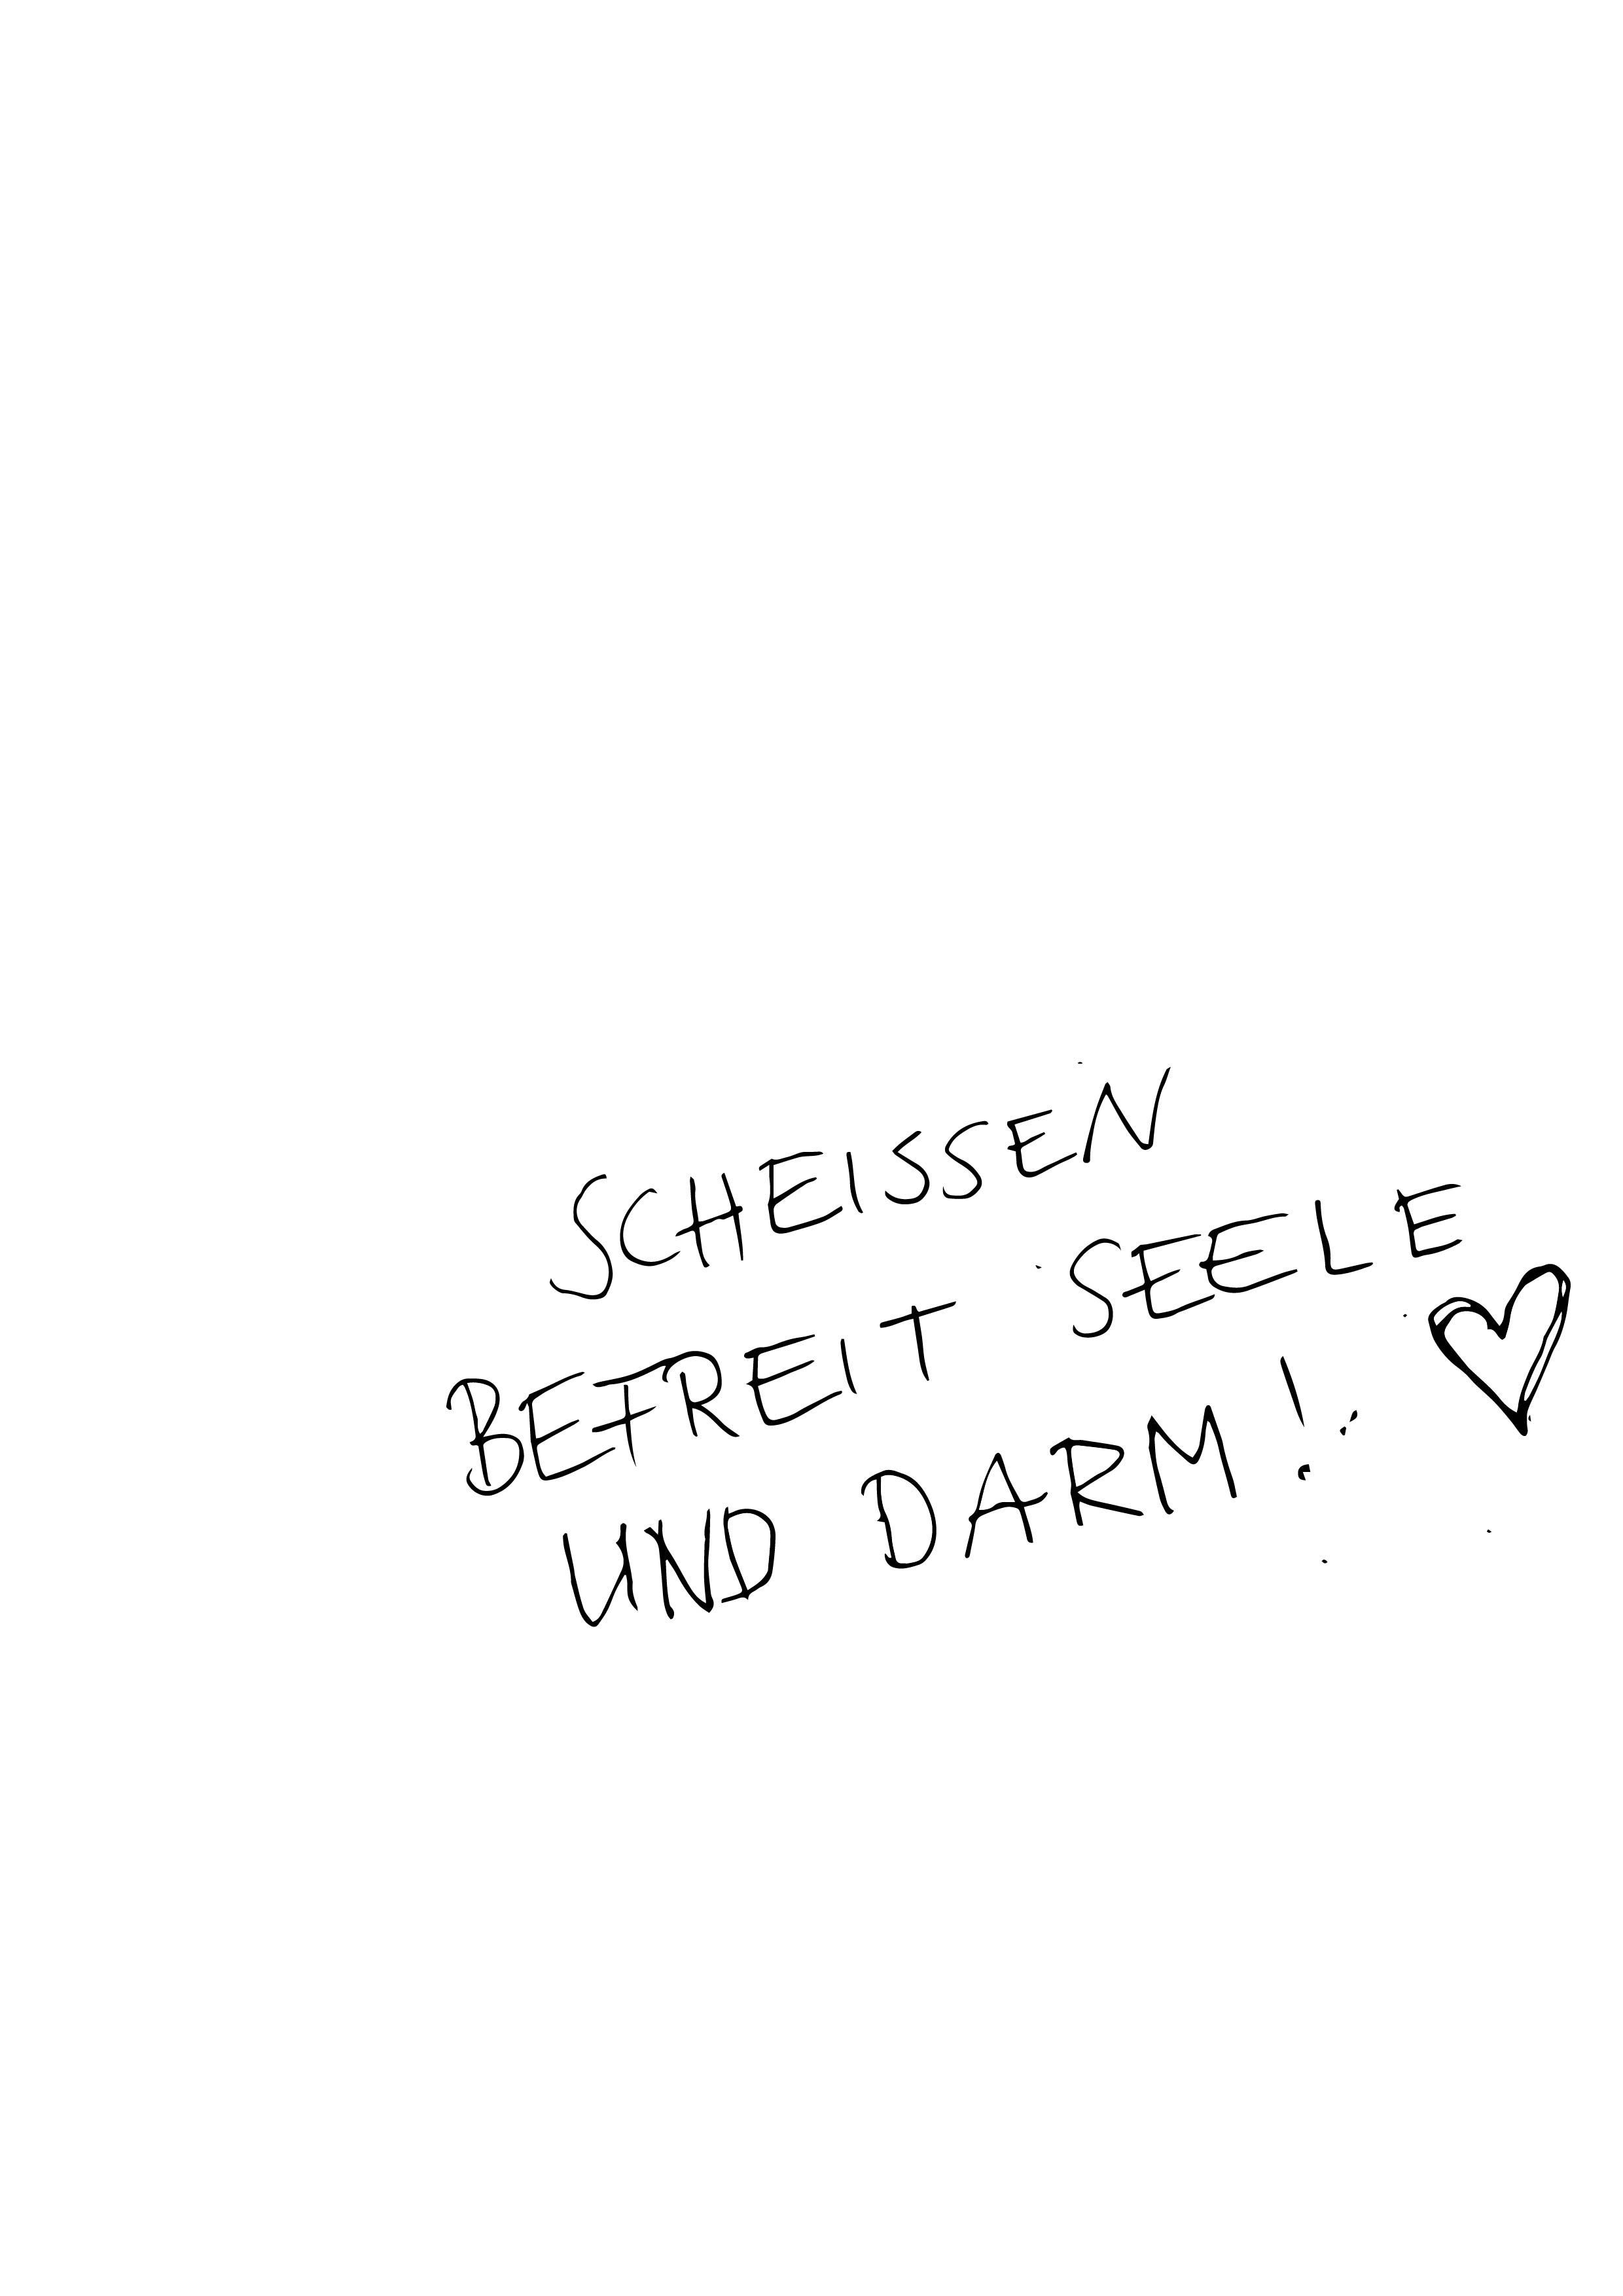 SCHEISSEN
BEFREIT SEELE
UND DARM!